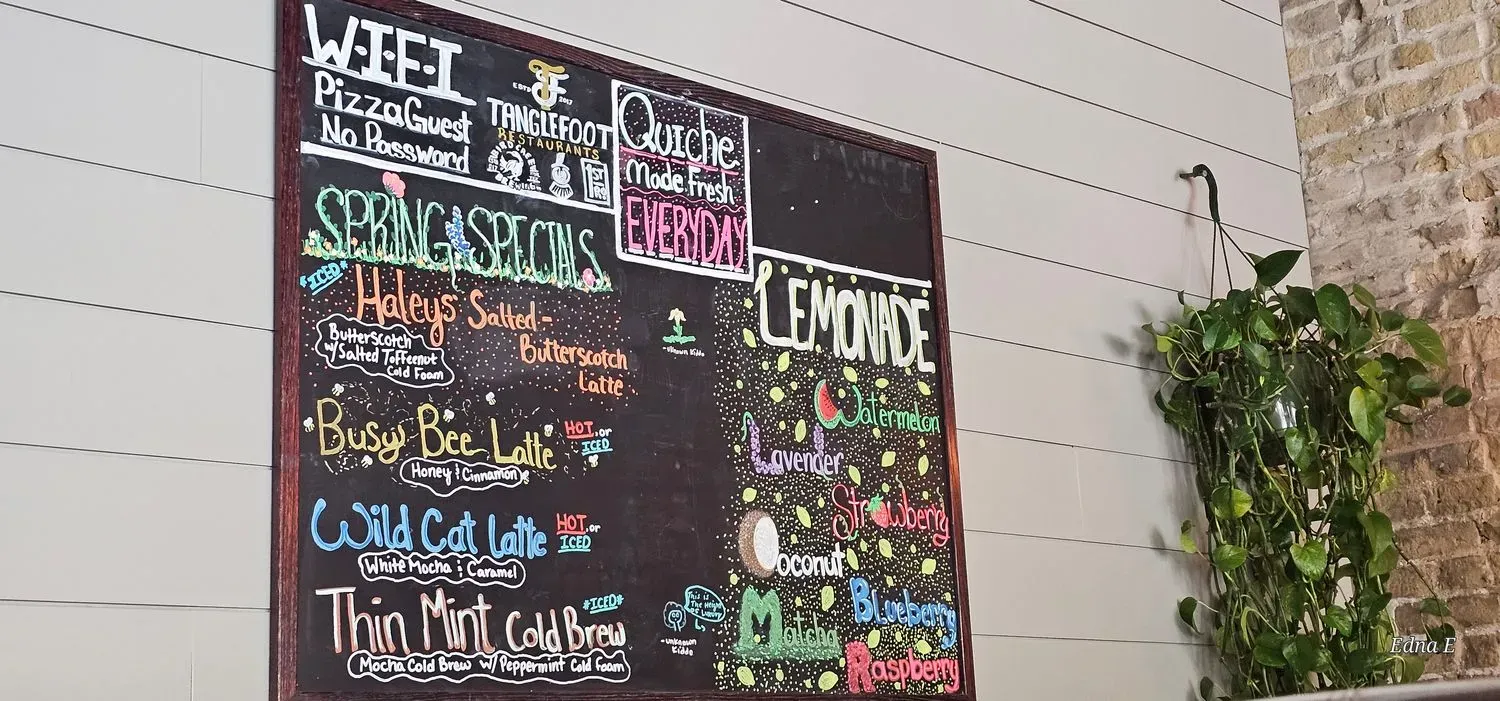 W·I·F·I
PizzaGuest
No Password
ESTD 2017
TANGLEFOOT
RESTAURANTS
Quiche
Made Fresh
EVERYDAY
SPRING SPECIALS
*ICED*
Haleys Salted-
Butterscotch
Latte
Butterscotch
w/Salted Toffeenut
Cold Foam
Busy Bee Latte
HOT or
ICED
Honey & Cinnamon
Wild Cat Latte
HOT or
ICED
White Mocha & Caramel
Thin Mint Cold Brew
*ICED*
Mocha Cold Brew w/ Peppermint Cold Foam
-uknown Kiddo
This is
The Height
of Luxury
-unknown
Kiddo
LEMONADE
Watermelon
Lavender
Strawberry
Coconut
Blueberry
Matcha
Raspberry
Edna E